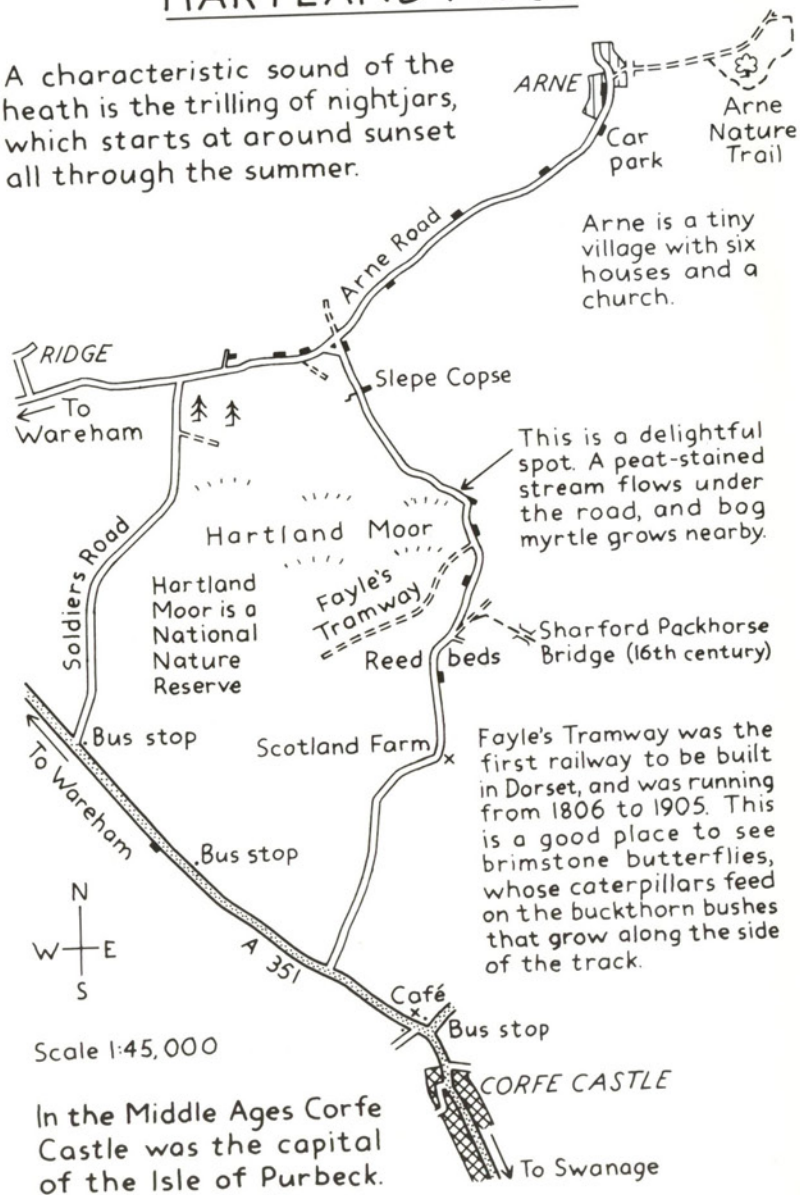 A characteristic sound of the
heath is the trilling of nightjars,
which starts at around sunset
all through the summer.
ARNE
Car
park
Arne
Nature
Trail
Arne is a tiny
village with six
houses and a
church.
Arne Road
RIDGE
To
Wareham
Slepe Copse
This is a delightful
spot. A peat-stained
stream flows under
the road, and bog
myrtle grows nearby.
Hartland Moor
Soldiers Road
Hartland
Moor is a
National
Nature
Reserve
Fayle's
Tramway
Reed beds
Sharford Packhorse
Bridge (16th century)
Bus stop
To Wareham
Scotland Farm
Fayle's Tramway was the
first railway to be built
in Dorset, and was running
from 1806 to 1905. This
is a good place to see
brimstone butterflies,
whose caterpillars feed
on the buckthorn bushes
that grow along the side
of the track.
Bus stop
N
W E
S
A 351
Café
Bus stop
Scale 1:45,000
CORFE CASTLE
In the Middle Ages Corfe
Castle was the capital
of the Isle of Purbeck.
To Swanage